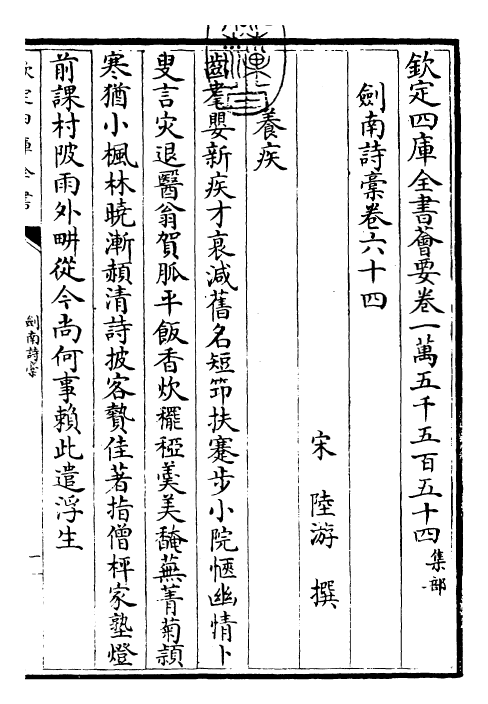 欽定四庫全書薈要卷一萬五千五百五十四集部
劍南詩稾卷六十四
宋陸游撰
養疾
齒耄嬰新疾才衰減舊名短笻扶蹇步小院愜幽情卜
叟言災退醫翁賀脈平飯香炊䆉稏羮美醃蕪菁菊頴
寒猶小楓林曉漸赬清詩披客贄佳著指僧枰家塾燈
前課村陂雨外畊從今尚何事賴此遣浮生
欽定四庫全書
劍南詩稾
一